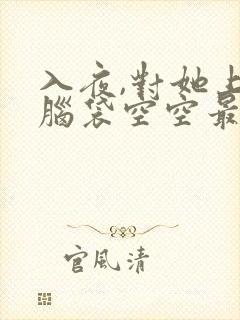 入夜,對她上
腦袋空空最
官風清